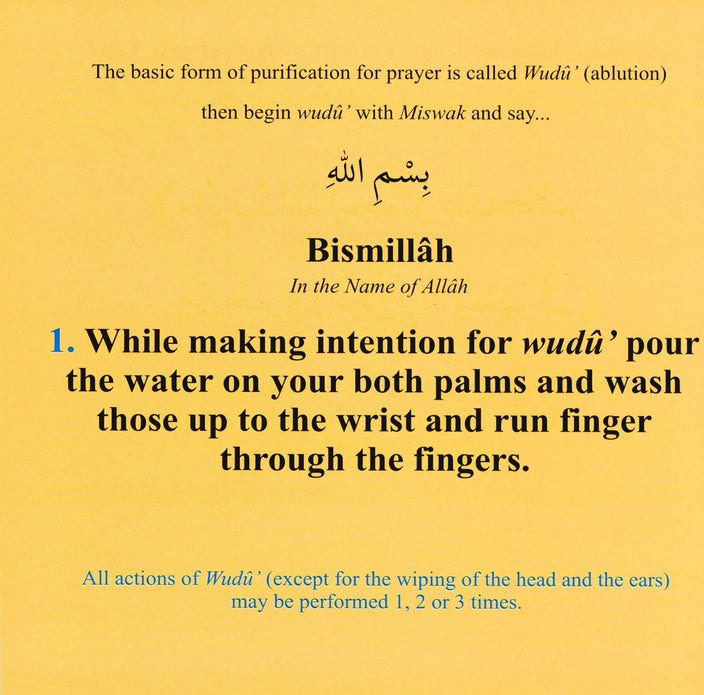 The basic form of purification for prayer is called Wudû’ (ablution)
then begin wudû’ with Miswak and say...
بِسْمِ اللهِ
Bismillâh
In the Name of Allâh
1. While making intention for wudû’ pour
the water on your both palms and wash
those up to the wrist and run finger
through the fingers.
All actions of Wudû’ (except for the wiping of the head and the ears)
may be performed 1, 2 or 3 times.